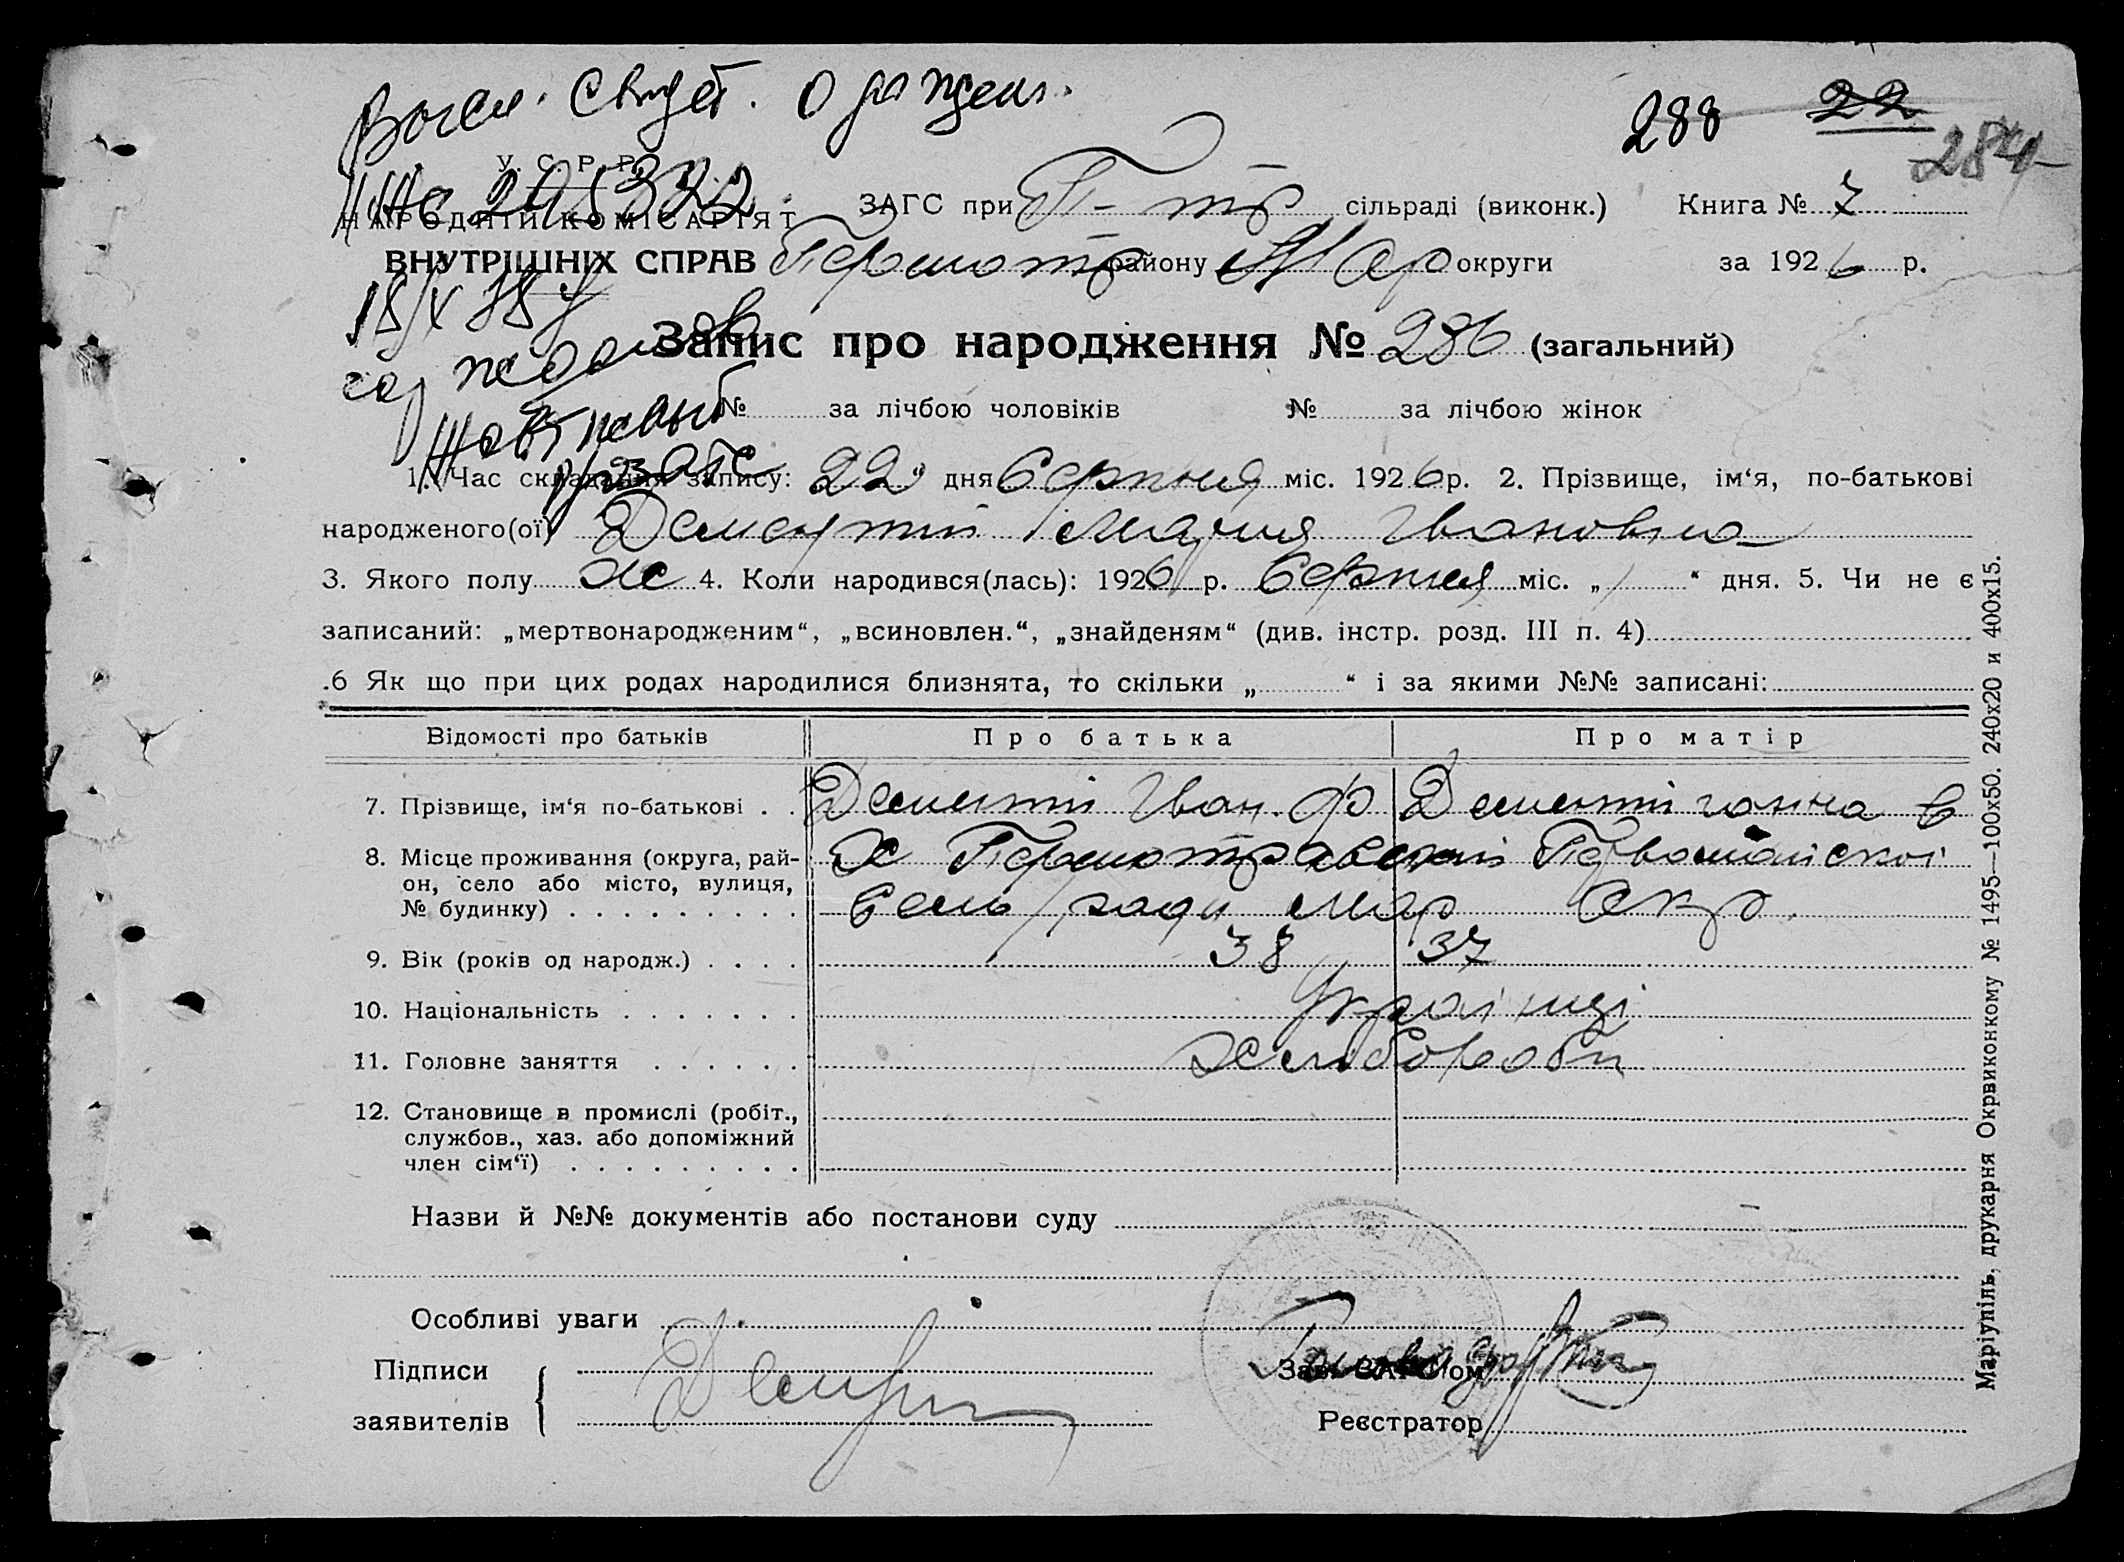 288 22
284
У. С. Р. Р.
НАРОДНІЙ КОМІСАРІЯТ
ВНУТРІШНІХ СПРАВ
ЗАГС при П-тр сільраді (виконк.) Книга № 7
району Мар округи за 1926 р.
18/X 38
Запис про народження № 286 (загальний)
№ за лічбою чоловіків № за лічбою жінок
1. Час складання запису: 22 дня Серпня міс. 1926 р. 2. Прізвище, ім‘я, по-батькові
народженого(ої) Дементій Мария Івановна
3. Якого полу ж 4. Коли народився(лась): 1926 р. Серпня міс. „1“ дня. 5. Чи не є
записаний: „мертвонародженим“, „всиновлен.“, „знайденям“ (див. інстр. розд. III п. 4)
.6 Як що при цих родах народилися близнята, то скільки „ “ і за якими №№ записані:
Відомості про батьків Про батька Про матір
7. Прізвище, ім‘я по-батькові . . Дементій Іван Ф Дементій ганна
8. Місце проживання (округа, рай-
он, село або місто, вулиця,
№ будинку) . . . . . . . . . ради Мар Окр.
9. Вік (років од народж.) . . . . 38 37
10. Національність . . . . . . . Українці
11. Головне заняття . . . . . . Хлібороби
12. Становище в промислі (робіт.,
службов., хаз. або допоміжний
член сім‘ї) . . . . . . . . .
Назви й №№ документів або постанови суду
Особливі уваги
Підписи
заявителів
Зав. ЗАГС‘ом
Реєстратор
Маріупіль, друкарня Окрвиконкому № 1495—100х50. 240х20 и 400х15.